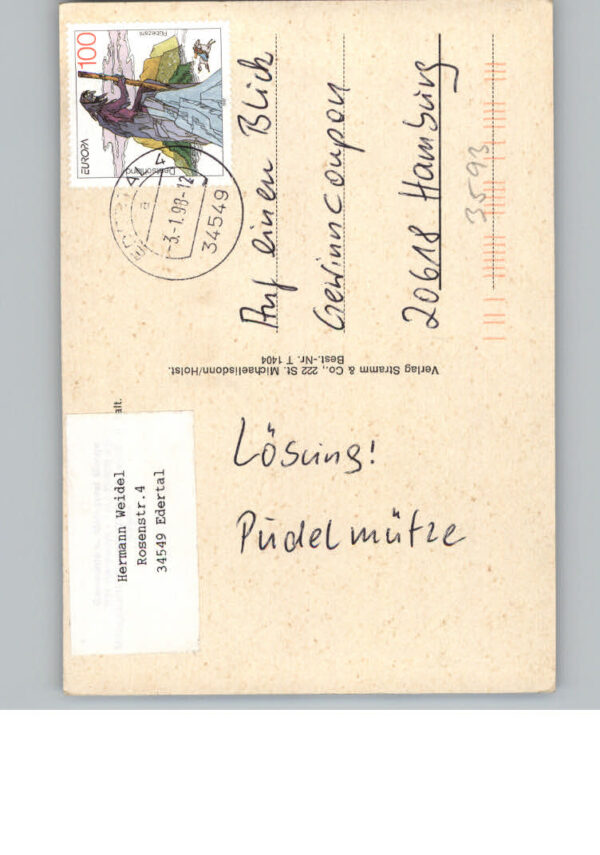 Rübezahl
100
EUROPA
Deutschland
a
-3.-1.98-12
34549
Auf einen Blick
Gewinncoupon
20618 Hamburg
3593
Verlag Stramm & Co., 222 St. Michaelisdonn/Holst.
Best.-Nr. T 1404
alt.
Hermann Weidel
Rosenstr.4
34549 Edertal
Lösung!
Pudelmütze